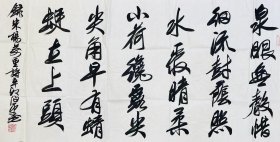 泉眼無聲惜
細流樹陰照
水愛晴柔
小荷才露尖
尖角早有蜻
蜓立上頭
錄朱楊萬里詩